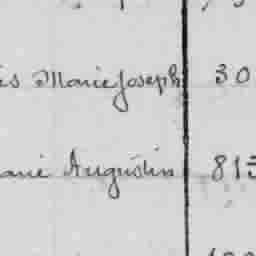 is Marie Joseph 30
arie Augustin 815